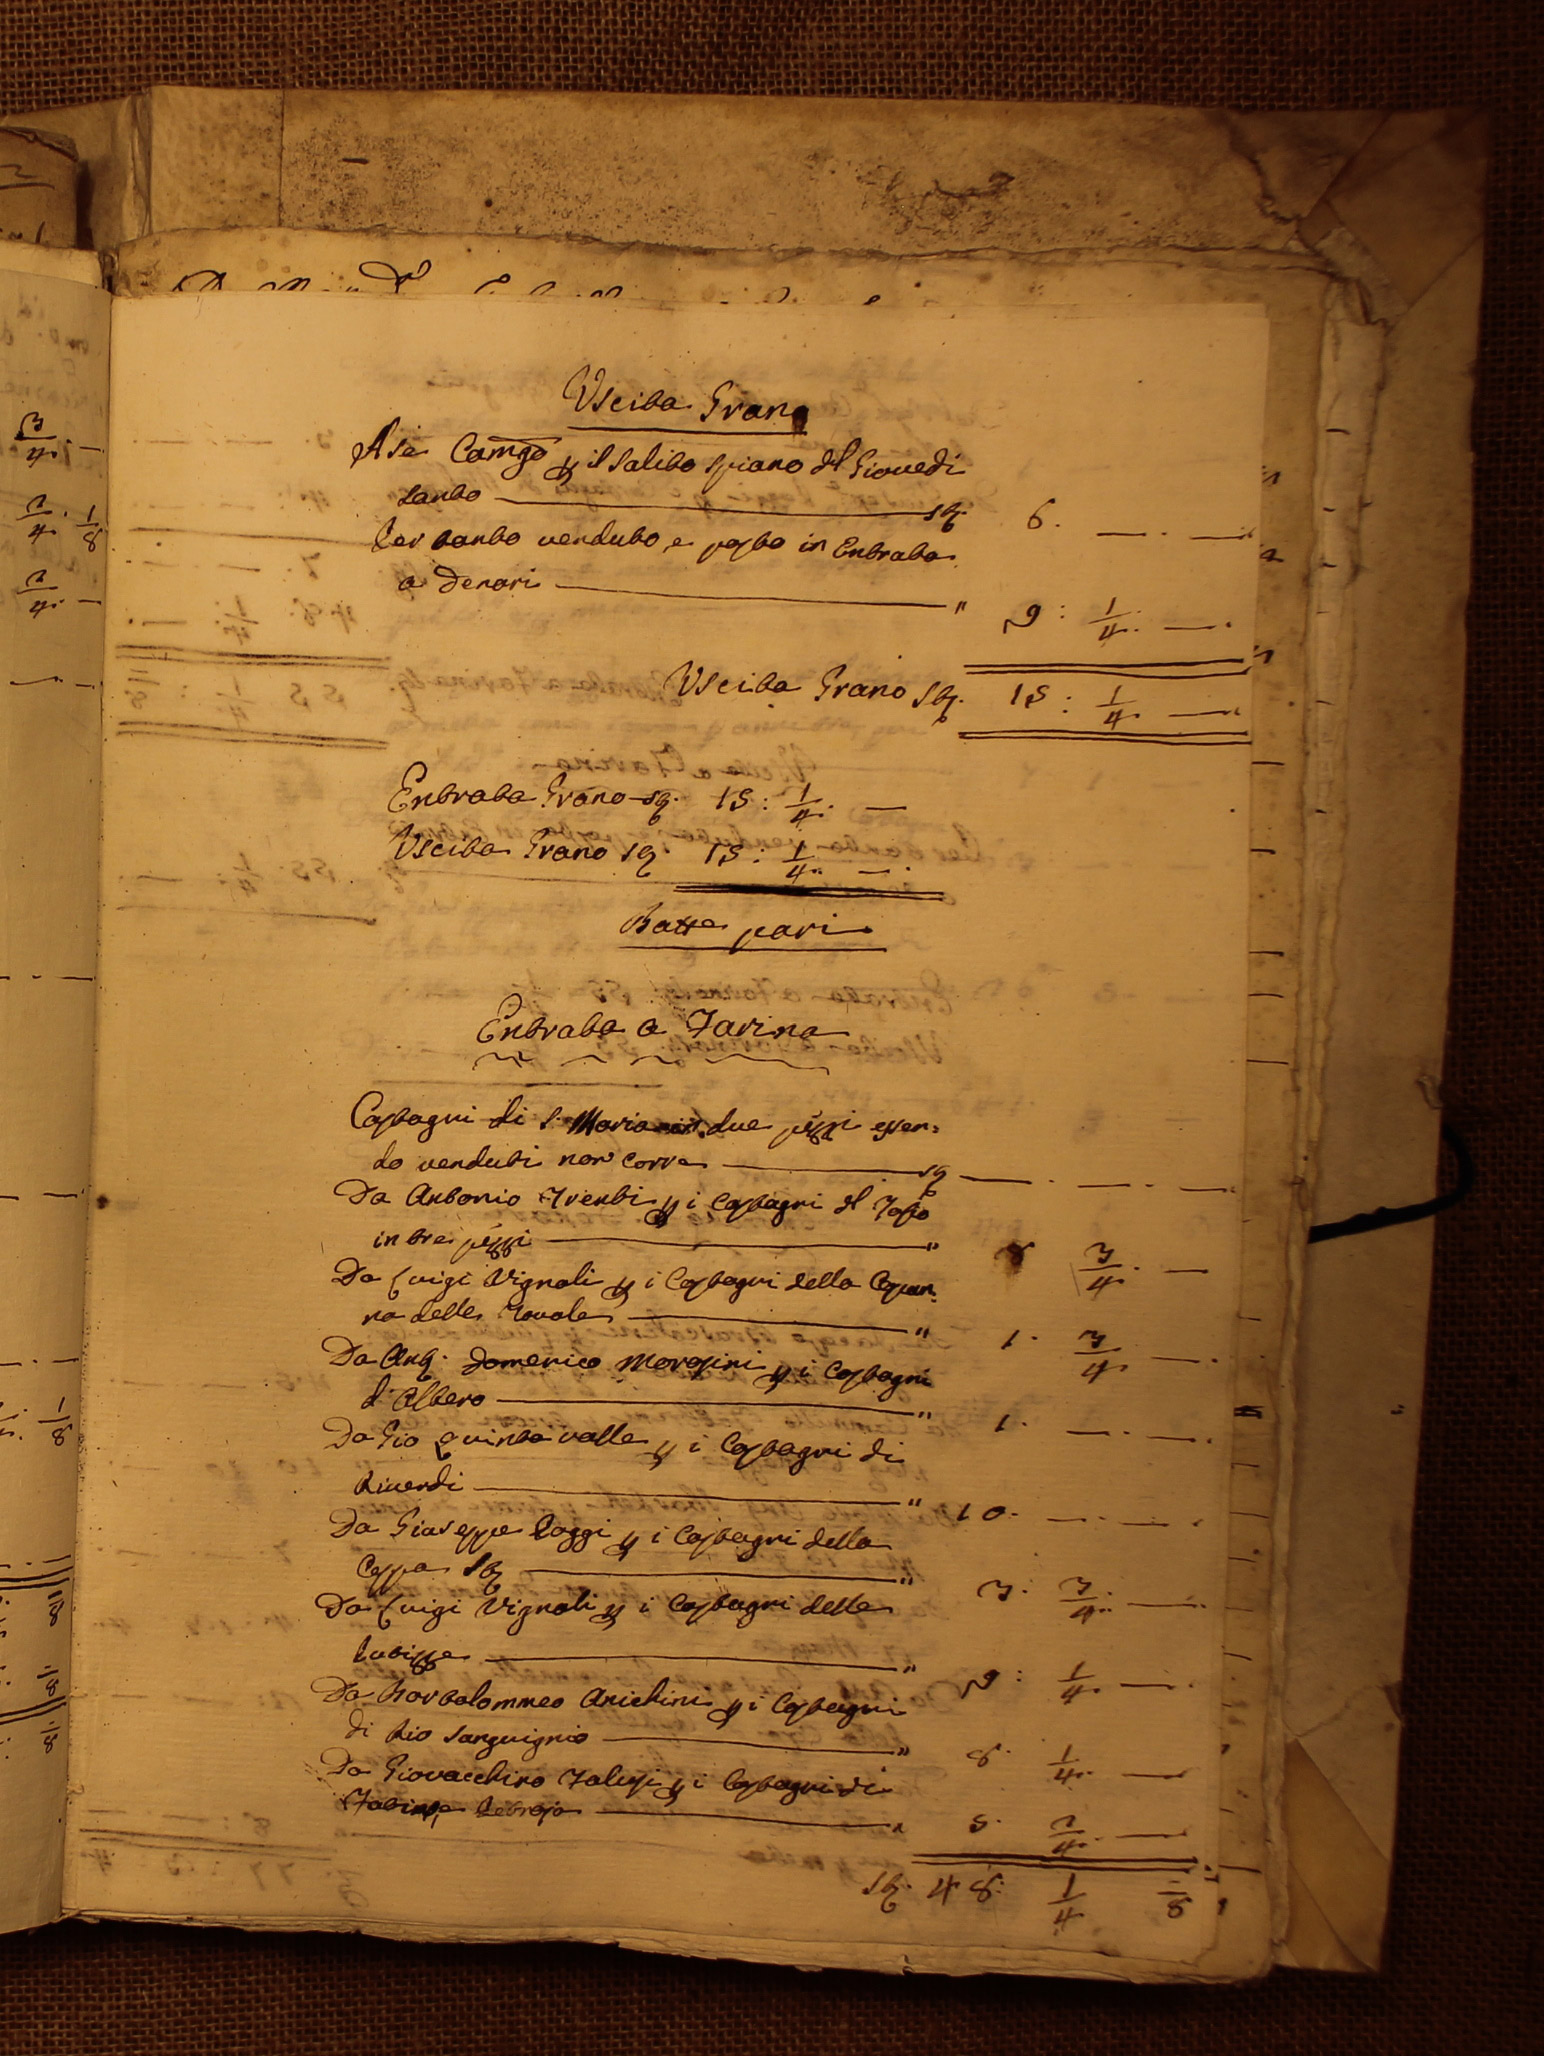 Uscita Grano
A Se Camgo p il Salito Spiano del Giovedi
Santo sq. 6. — . —
Per tanto venduto, e posto in Entrata
a Denari " 9 : 1/4. —.
Uscita Grano sq. 15 : 1/4. —
Entrata Grano sq. 15 : 1/4. —
Uscita Grano sq. 15 : 1/4. —.
Batte pari
Entrata a Farina
Castagni di S. Maria in due pezzi essen=
do venduti non corre sq — . — . —.
Da Antonio Trenti p i Castagni del
in tre pezzi " 8 3/4. —
Da Luigi Vignali p i Castagni della Capan=
na delle Tavole " 1. 3/4. —.
Da Ang. Domenico Morosini p i Castagni
d'Albero " 1. — . —.
Da Gio Quinta valle p i Castagni di
Riverdi " 10. — . — .
Da Giuseppe Poggi p i Castagni della
Ceppa sq " 3. 3/4. —.
Da Luigi Vignali p i Castagni delle
" 9 : 1/4. —.
Da Bartolommeo Anichini p i Castagni
di Rio Sanguignio " 8. 1/4. —
Da Giovacchino p i Castagni di
" 5. 2/4. —
sq. 48. 1/4 1/8